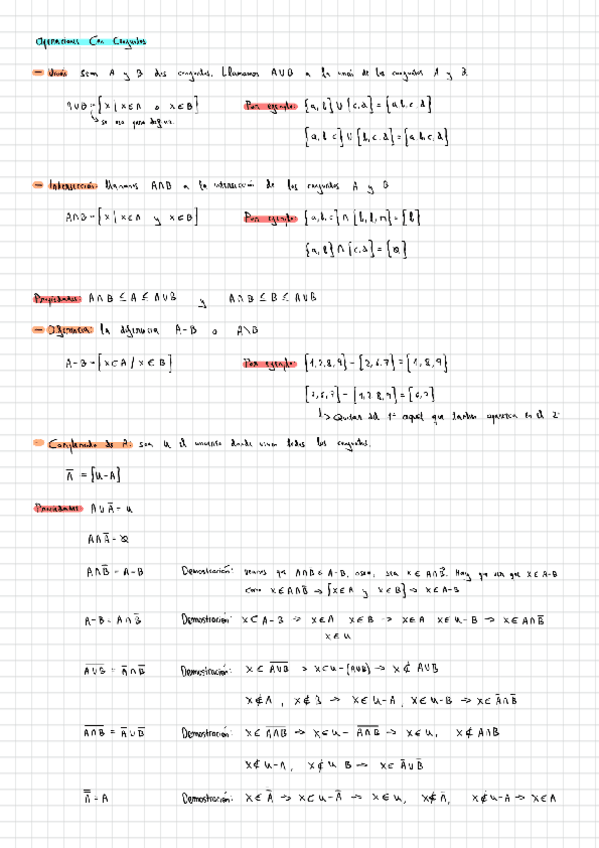 Operaciones Con Conjuntos
- Unión Sean A y B dos conjuntos. Llamamos A∪B a la unión de los conjuntos A y B
A∪B = {x | x∈A o x∈B} Por ejemplo: {a,b}∪{c,d} = {a,b,c,d}
se usa para definir.
{a,b,c}∪{b,c,d} = {a,b,c,d}
- Intersección llamamos A∩B a la intersección de los conjuntos A y B
A∩B = {x | x∈A y x∈B} Por ejemplo:
{a,b}∩{c,d} = {∅}
Propiedades A∩B ⊆ A ⊆ A∪B y A∩B ⊆ B ⊆ A∪B
- Diferencia: la diferencia A-B o A\B
Por ejemplo: {1,2,8,9} - {2,6,7} = {1,8,9}
= {6,7}
Quitar del 1º aquel que también aparezca en el 2º
- Complemento de A: sea U el universo donde viven todos los conjuntos.
Ā = {U-A}
Propiedades A∪Ā = U
A∩Ā = ∅
A∩B̅ = A-B Demostración: veamos que
Hay que ver que x∈A-B
como
A-B = A∩B̅ Demostración:
x∈U
A̅∪̅B̅ = A̅∩B̅ Demostración: x∈A̅∪̅B̅ → x∈U-(A∪B) → x∉A∪B
x∉A, x∉B → x∈U-A, x∈U-B → x∈A̅∩B̅
A̅∩̅B̅ = A̅∪B̅ Demostración: x∈A̅∩̅B̅ → x∈U-A̅∩̅B̅ → x∈U, x∉A∩B
x∉U-A, x∉U B → x∈A̅∪B̅
A̿ = A Demostración: x∈A̿ → x∈U-A̅ → x∈U, x∉A̅, x∉U-A → x∈A